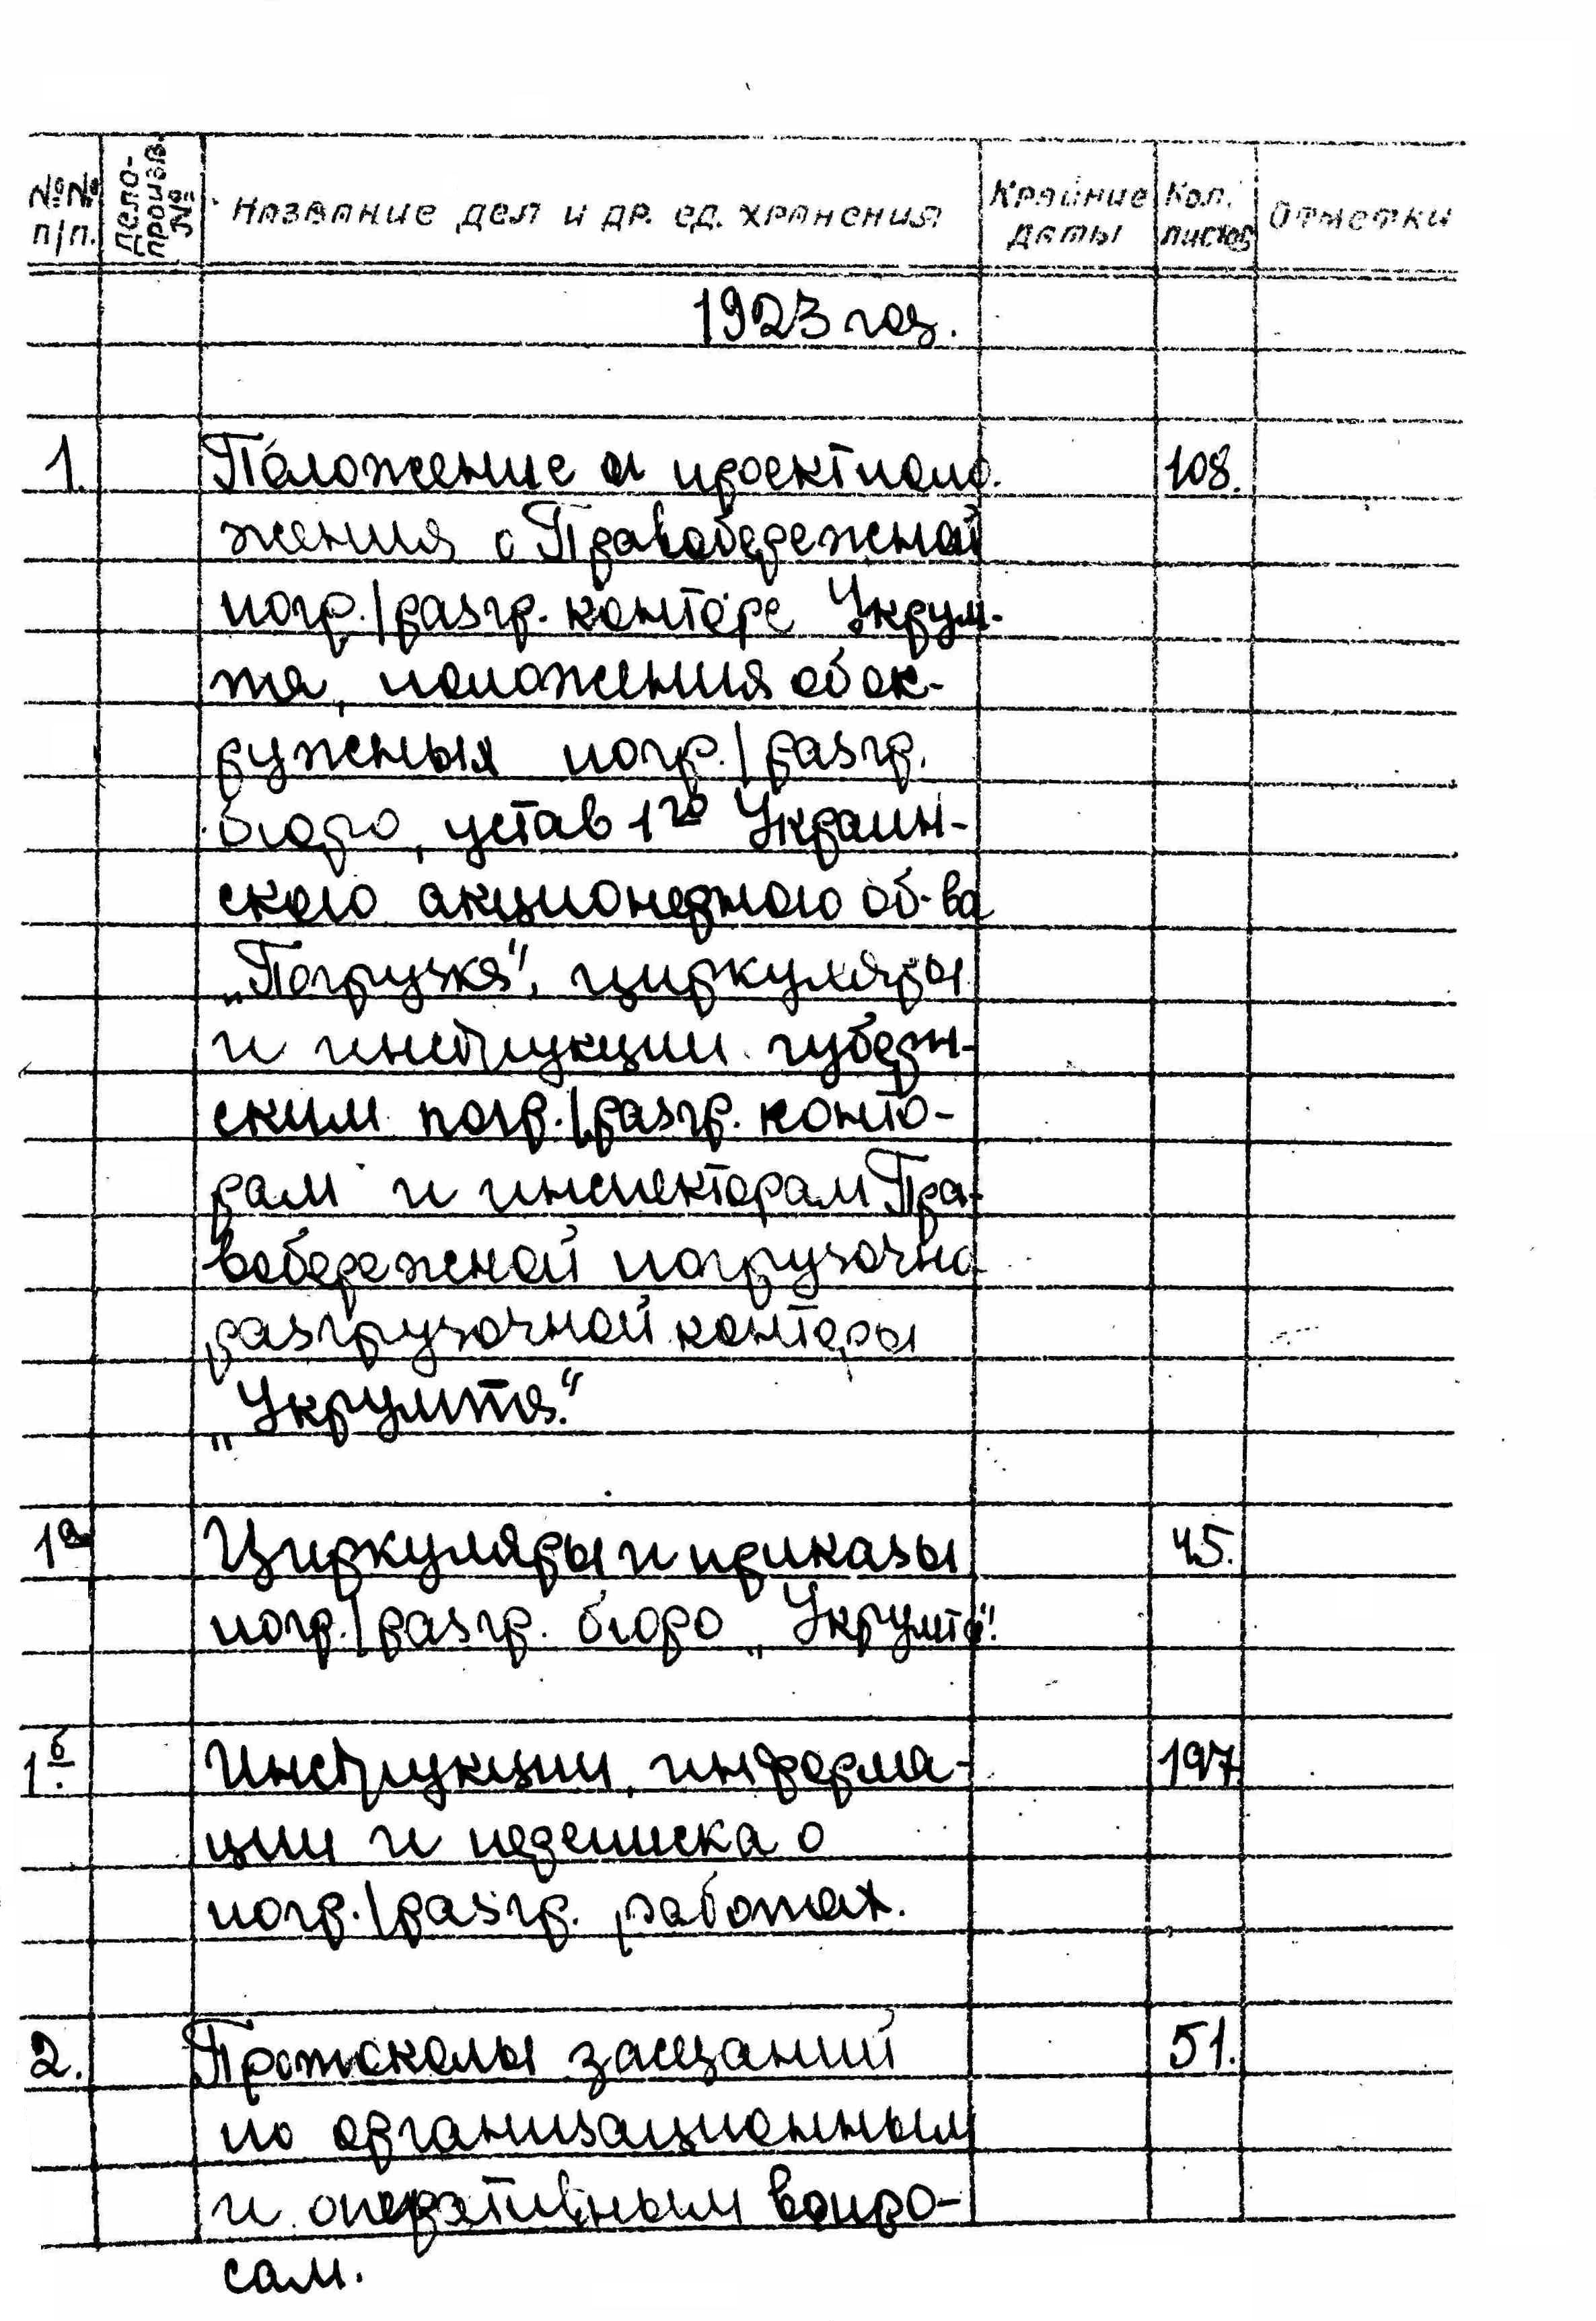 №№ п/п. Дело-произв. № Название дел и др. ед. хранения Крайние даты Кол. листов Отметки
1923 год.
1. Положение и проект поло- 108.
жения о Правобережной
погр./разгр. конторе Укрум-
тя, положения об ок-
ружных погр./разгр.
бюро, устав 1го Украин-
ского акционерного об-ва
„Погрузка", циркуляры
и инструкции губерн-
ским погр./разгр. конто-
рам и инспекторам Пра-
вобережной погрузочно
разгрузочной конторы
„Укрумтя."
1а Циркуляры и приказы 45.
погр./разгр. бюро „Укрумтя".
1б. Инструкции, информа- 197
ции и переписка о
погр./разгр. работах.
2. Протоколы заседаний 51.
по организационным
и оперативным вопро-
сам.